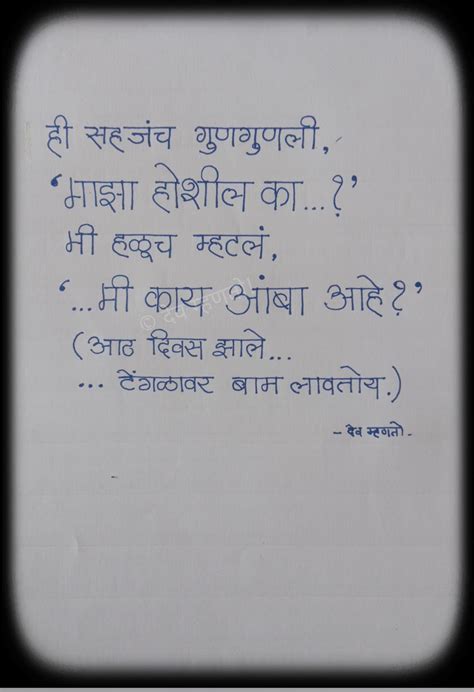 ही सहजंच गुणगुणली,
‘माझा होशील का...?’
मी हळूच म्हटलं,
‘...मी काय आंबा आहे?’
(आठ दिवस झाले...
... टेंगळावर बाम लावतोय.)
- देव म्हणतो -
© देव म्हणतो।